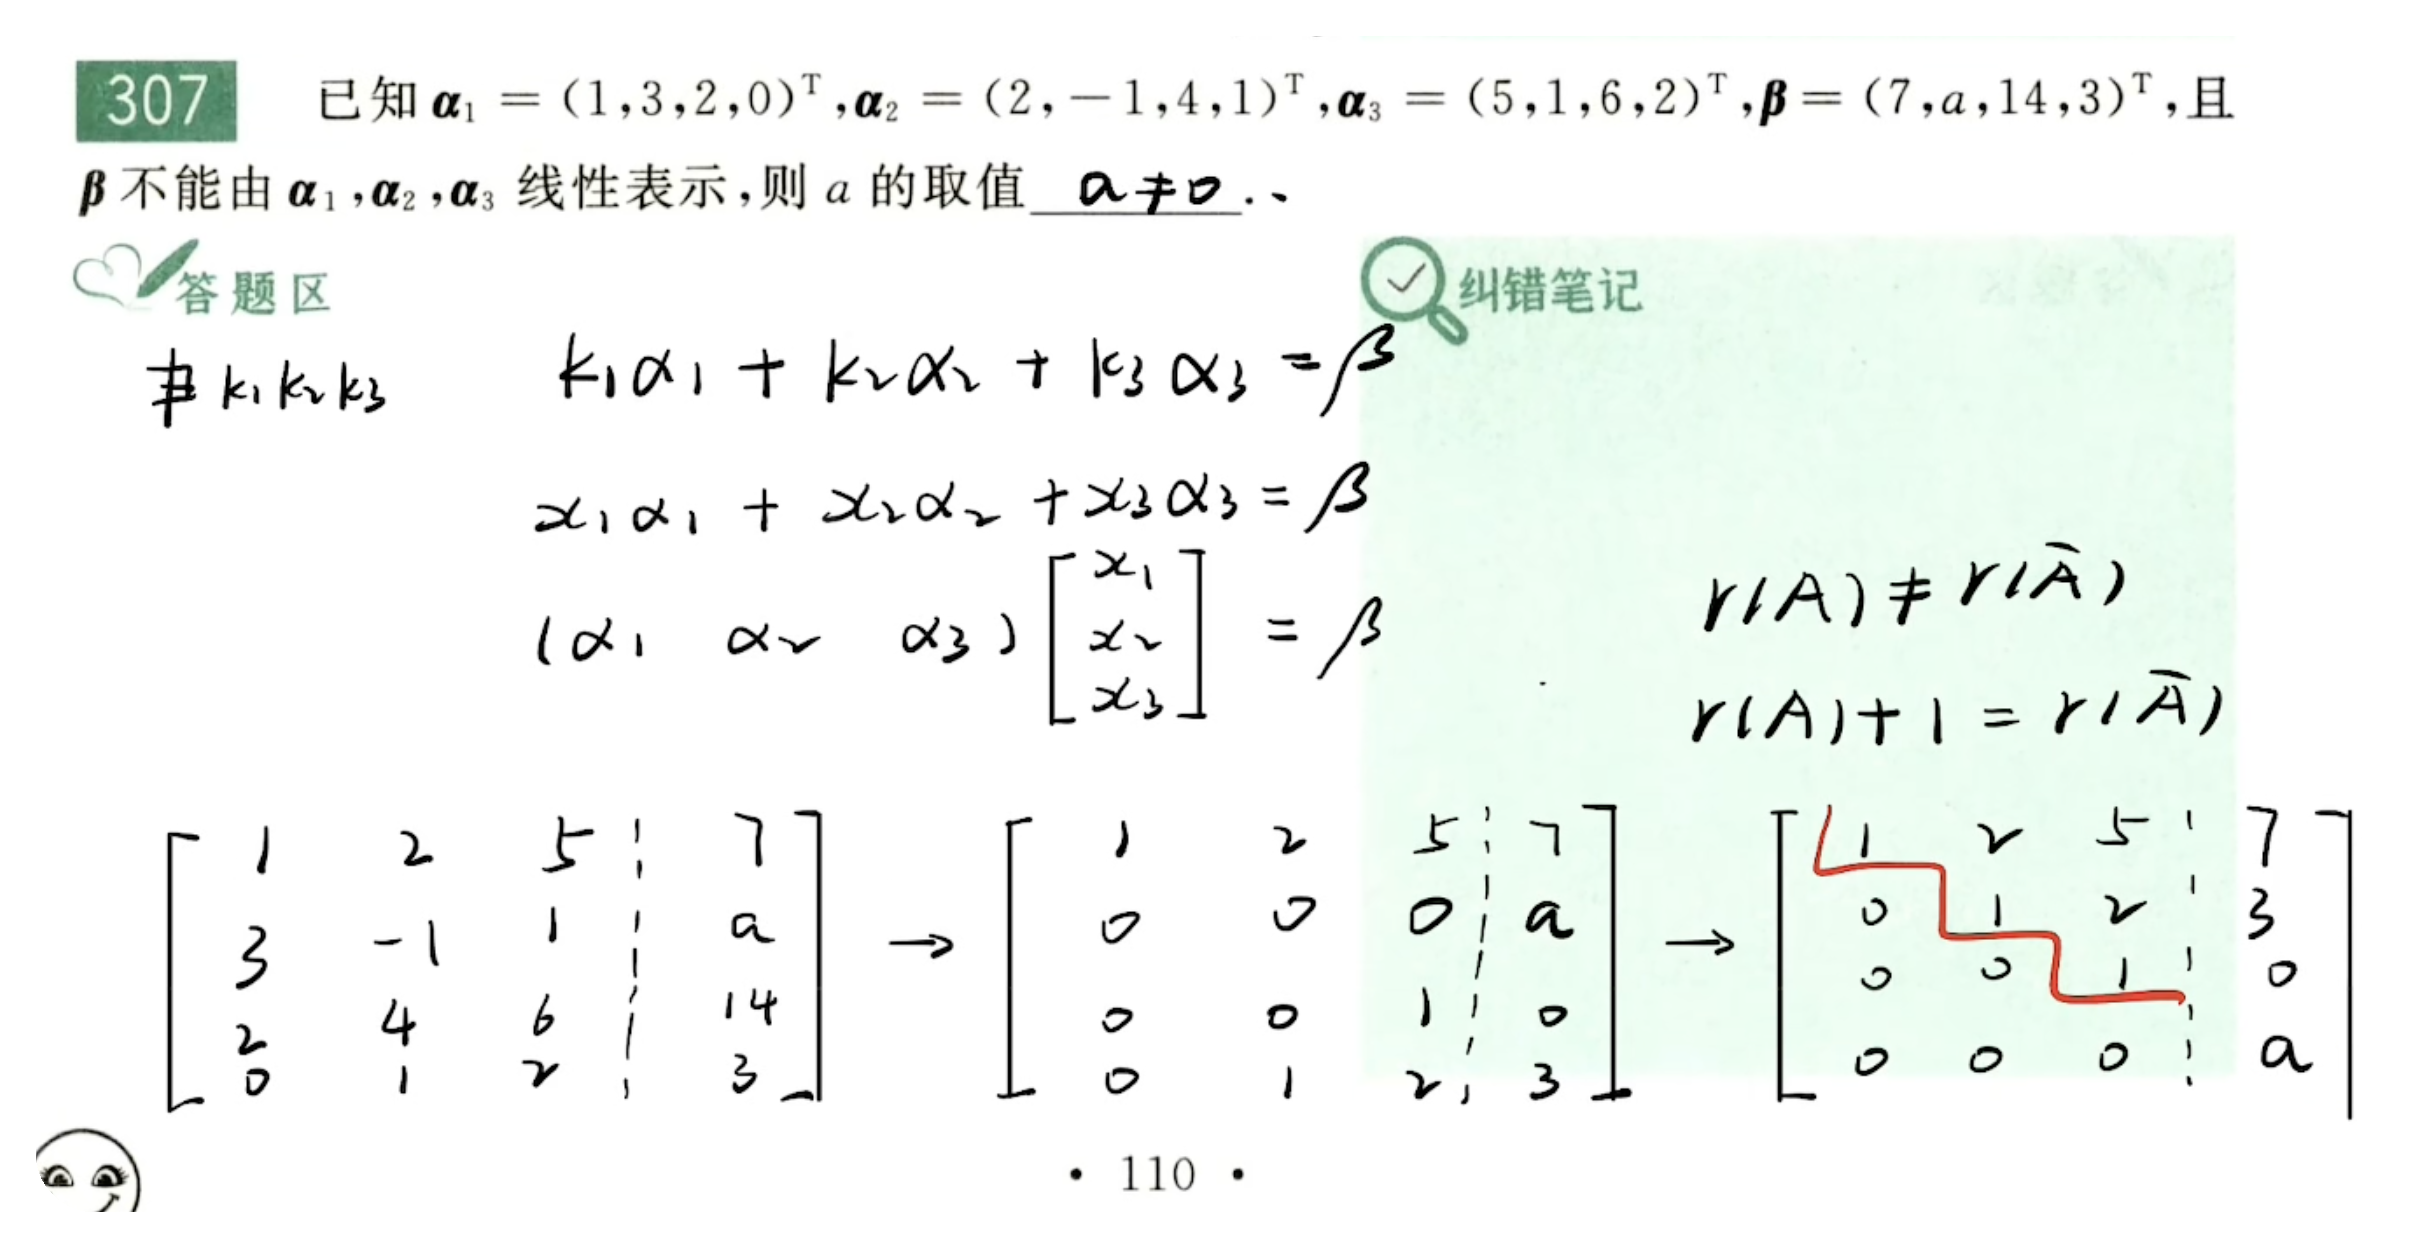 307 已知 α₁ = (1,3,2,0)ᵀ,α₂ = (2,-1,4,1)ᵀ,α₃ = (5,1,6,2)ᵀ,β = (7,a,14,3)ᵀ,且
β 不能由 α₁,α₂,α₃ 线性表示,则 a 的取值 a≠0 .、
答题区
纠错笔记
∄ k₁ k₂ k₃ k₁α₁ + k₂α₂ + k₃α₃ = β
x₁α₁ + x₂α₂ + x₃α₃ = β
(α₁ α₂ α₃) [x₁ x₂ x₃] = β
r(A) ≠ r(Ā)
r(A)+1 = r(Ā)
1 2 5 ¦ 7 1 2 5 ¦ 7 1 2 5 ¦ 7
3 -1 1 ¦ a → 0 0 0 ¦ a → 0 1 2 ¦ 3
2 4 6 ¦ 14 0 0 1 ¦ 0 0 0 1 ¦ 0
0 1 2 ¦ 3 0 1 2 ¦ 3 0 0 0 ¦ a
· 110 ·